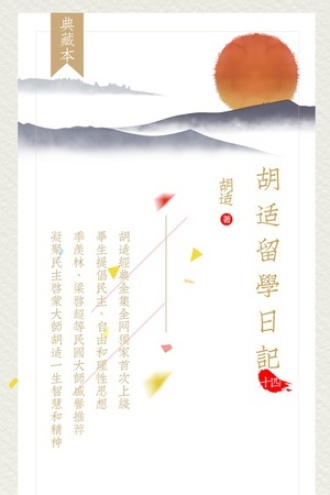 典藏本
胡适留學日記
十四
胡适
著
胡适經典全集全网獨家首次上綫
畢生提倡民主、自由和理性思想
季羨林、梁啓超等民國大師誠摯推荐
凝聚民主啓蒙大師胡适一生智慧和精神